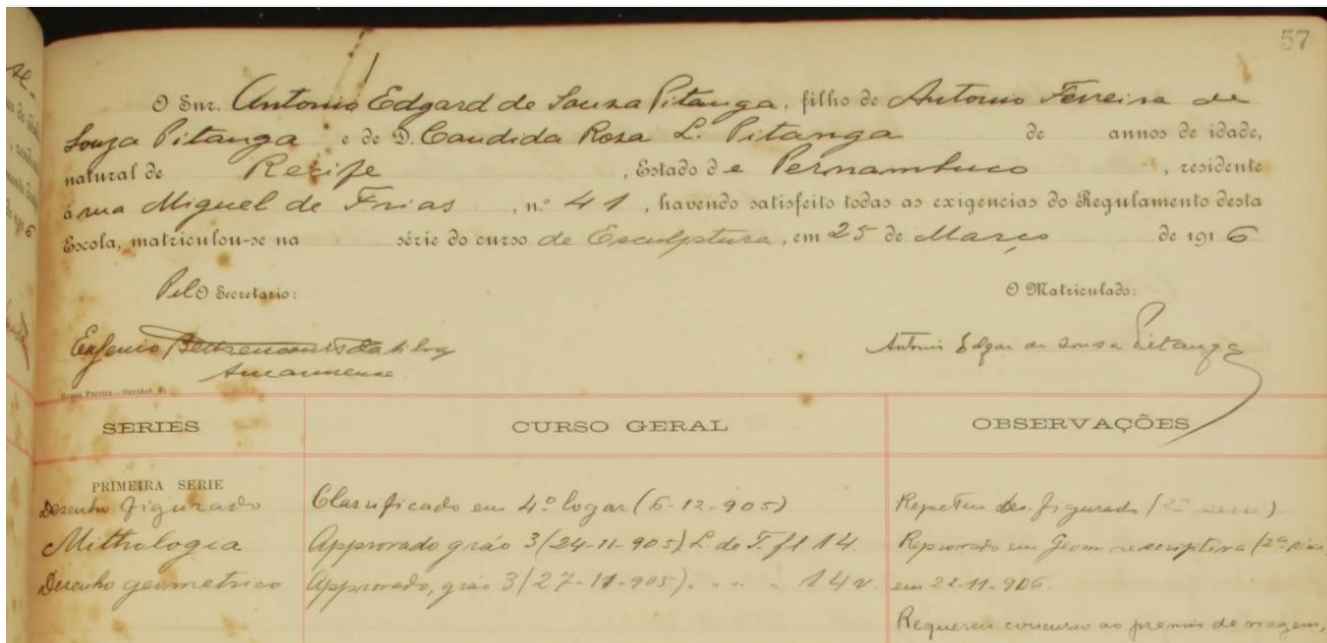 57
O Snr. Antonio Edgard de Souza Pitanga, filho de Antonio Ferreira de
Souza Pitanga e de D. Candida Rosa L. Pitanga de annos de idade,
natural de Recife, Estado de Pernambuco, residente
á rua Miguel de Frias, n.º 41, havendo satisfeito todas as exigencias do Regulamento desta
Escola, matriculou-se na série do curso de Esculptura, em 25 de Março de 1916
Pelo Secretario: O Matriculado:
Antonio Edgar de Sousa Pitanga
Eugenio Bettencourt da Silva
SERIES CURSO GERAL OBSERVAÇÕES
PRIMEIRA SERIE
Desenho figurado Classificado em 4º logar (6-12-905) Repetiu des. figurado (2ª serie).
Mithologia Approvado gráo 3 (24-11-905) L. de T. fl 14. Reprovado em Geom. descriptiva (2ª
Desenho geometrico Approvado, gráo 3 (27-11-905) " " " 14 v. em 22-11-906.
Requereu concurso ao premio de viagem,